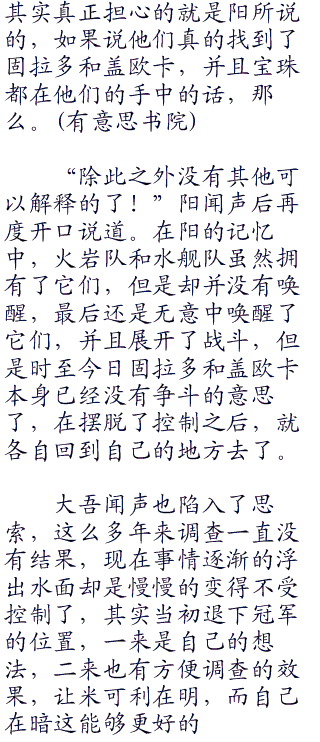 其实真正担心的就是阳所说
的，如果说他们真的找到了
固拉多和盖欧卡，并且宝珠
都在他们的手中的话，那
么。(有意思书院)
“除此之外没有其他可
以解释的了！”阳闻声后再
度开口说道。在阳的记忆
中，火岩队和水舰队虽然拥
有了它们，但是却并没有唤
醒，最后还是无意中唤醒了
它们，并且展开了战斗，但
是时至今日固拉多和盖欧卡
本身已经没有争斗的意思
了，在摆脱了控制之后，就
各自回到自己的地方去了。
大吾闻声也陷入了思
索，这么多年来调查一直没
有结果，现在事情逐渐的浮
出水面却是慢慢的变得不受
控制了，其实当初退下冠军
的位置，一来是自己的想
法，二来也有方便调查的效
果，让米可利在明，而自己
在暗这能够更好的